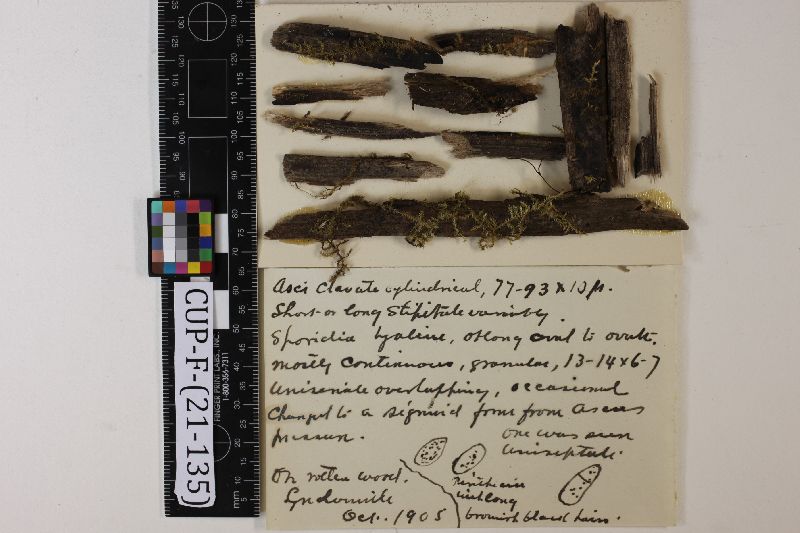 Asci clavate cylindrical, 77-93 x 10 µ.
Short or long stipitate variably.
Sporidia hyaline, oblong oval to ovate,
mostly continuous, granular, 13-14 x 6-7
Uniseriate overlapping, occasional
changed to a sigmoid form from ascus
pressure.
One was seen
uniseptate.
On rotten wood.
Lyndonville
Oct. 1905
Perithecia
with long
brownish black hairs.
CUP-F-(21-135)
FINGER PRINT LABS., INC.
1-800-356-7311
mm 5
10
15
20
75
80
85
90
95
100
105
110
115
120
125
130